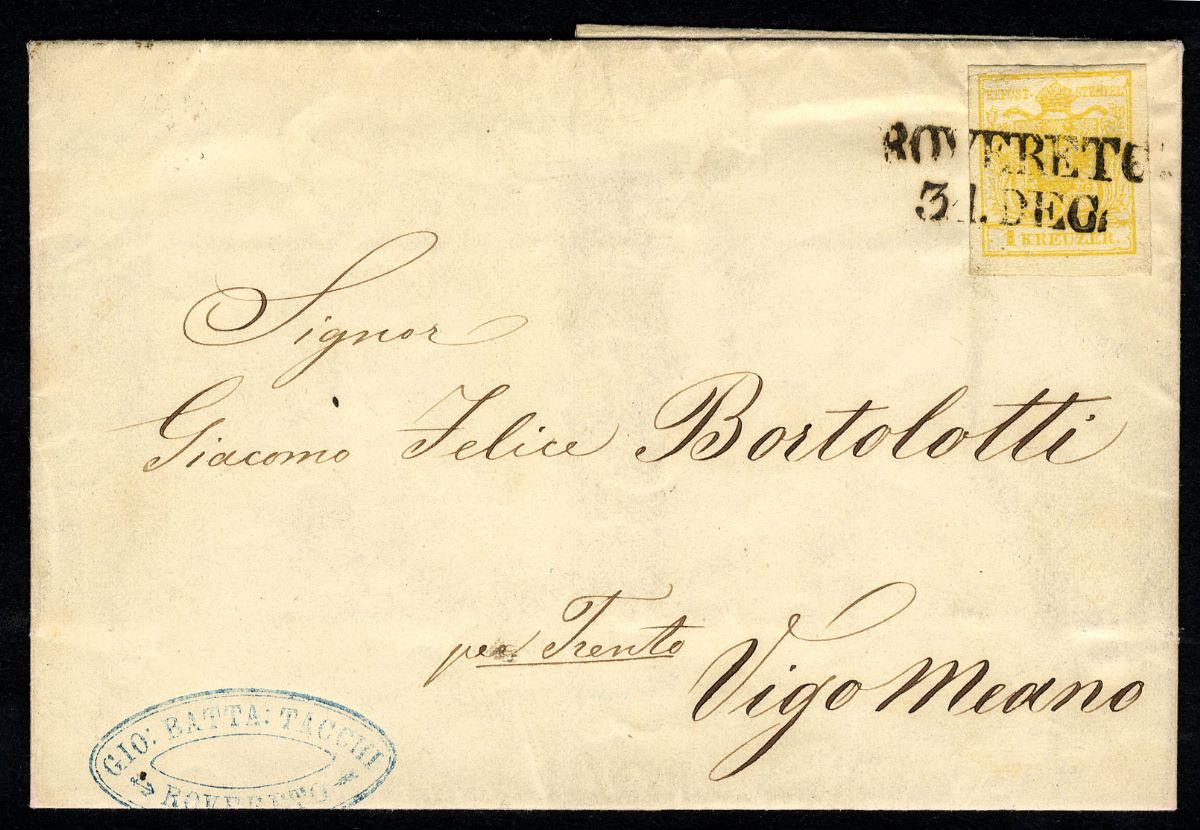 KKPOST-STEMPEL
ROVERETO
31. DEC.
1 KREUZER.
Signor
Giacomo Felice Bortolotti
per Trento
Vigo Meano
GIO: BATTA: TACCHI
ROVERETO